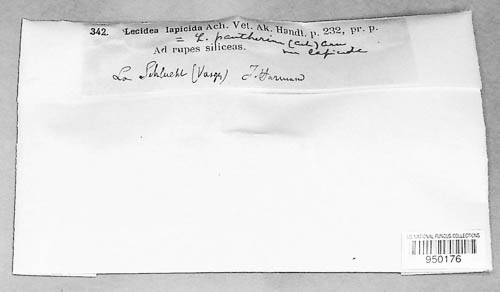 342. Lecidea lapicida Ach. Vet. Ak. Handl. p. 232, pr. p.
= L. pantherina (Ach)
Ad rupes siliceas. lapicida
La Schlucht (Vosges) J. Harmand
US NATIONAL FUNGUS COLLECTIONS
950176